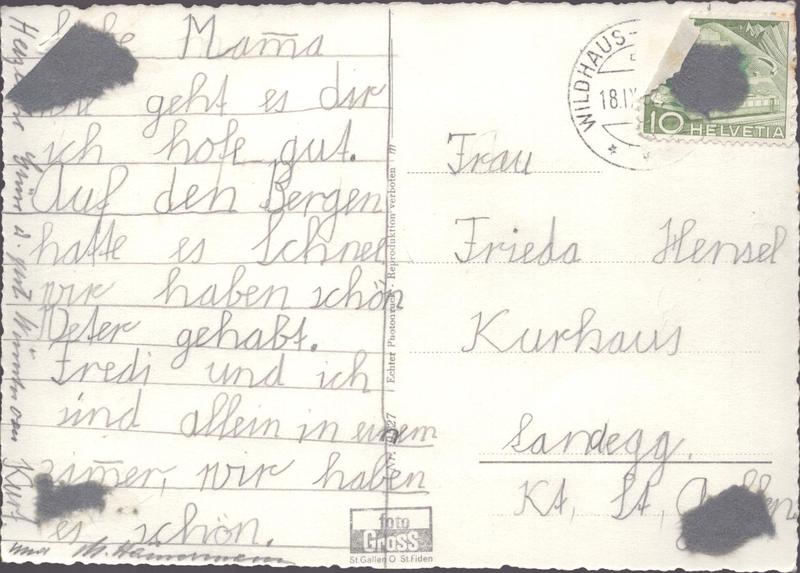 Mama
geht es dir
ich hofe gut.
Auf den Bergen
hatte es Schnee
wir haben schön
Weter gehabt.
Fredi und ich
sind allein in einem
zimer, wir haben
es schön.
u. gute
von Kurt
und
Echter Photodruck - Reproduktion verboten
foto
Gross
St. Gallen O St. Fiden
WILDHAUS
18.IX
10 HELVETIA
Frau
Frieda Hensel
Kurhaus
Landegg.
Kt. St. Gallen